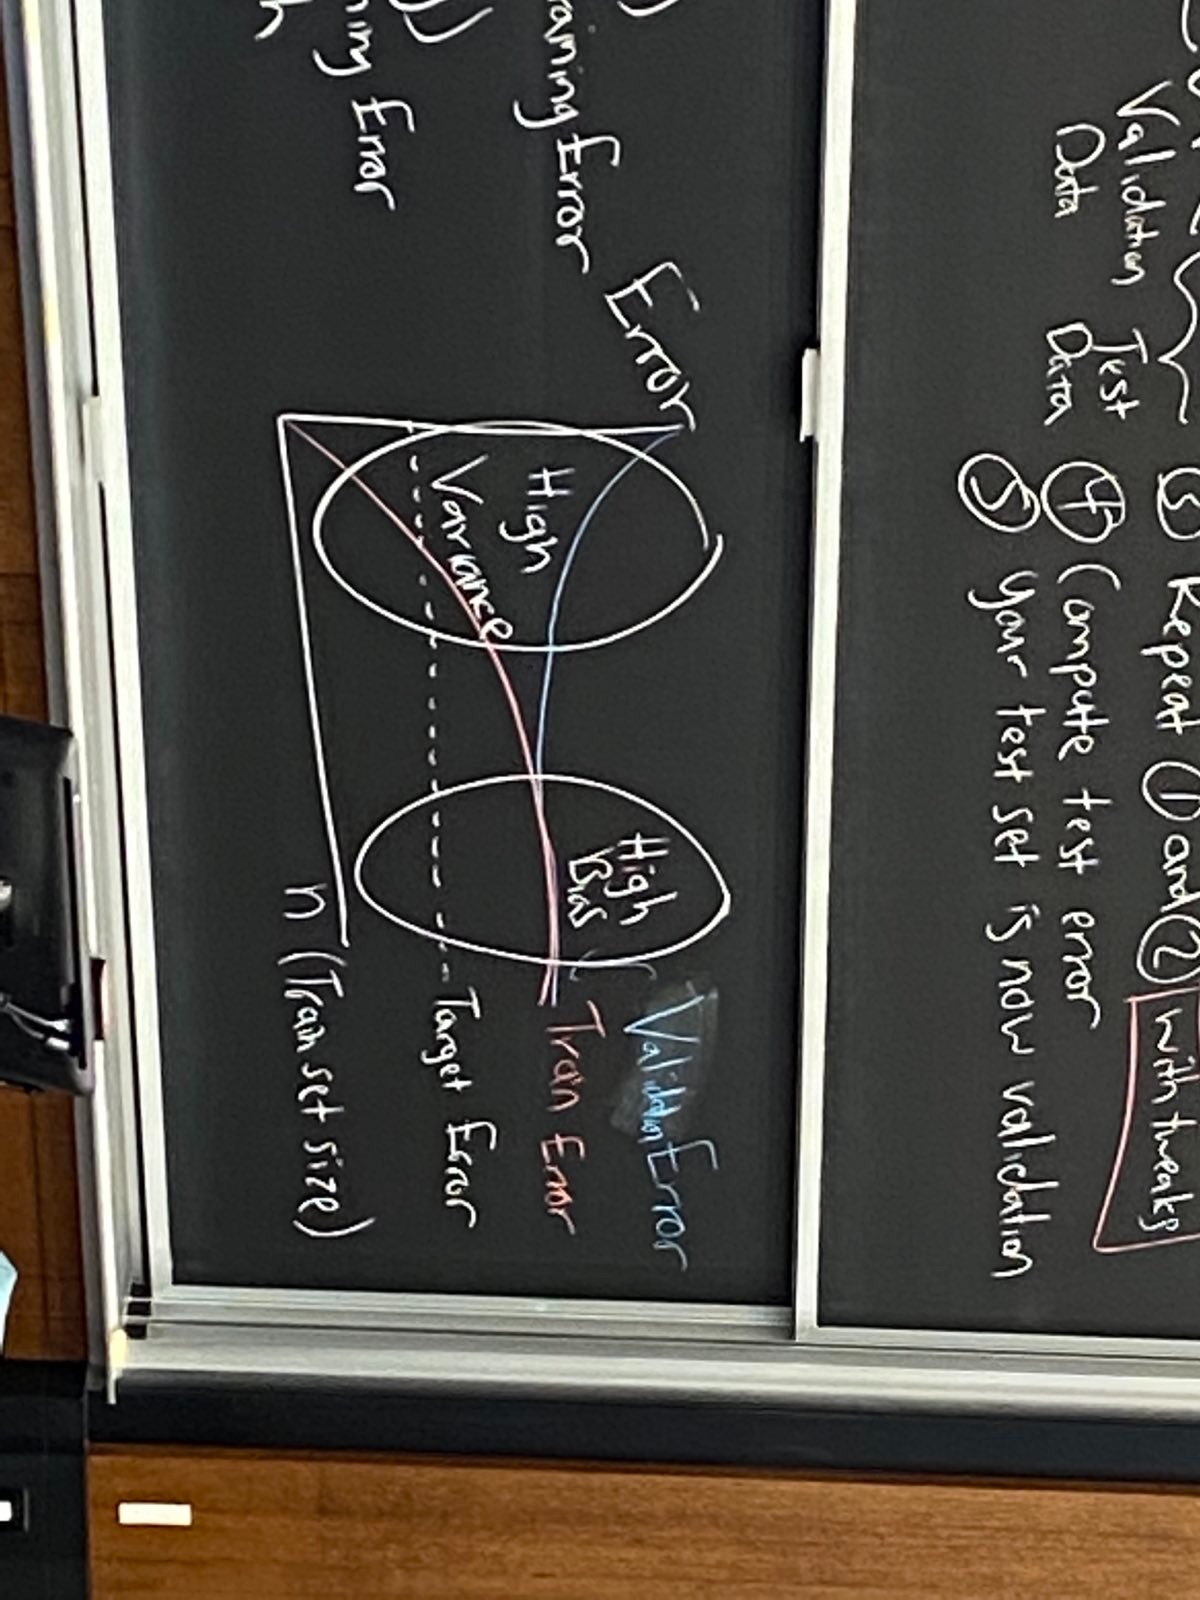 Validation
Data
Test
Data
③ Repeat ① and ② with tweaks
④ Compute test error
⑤ Your test set is now validation
Error
raining Error
ning Error
h
High
Variance
High
Bias
Validation Error
Train Error
Target Error
n (Train set size)